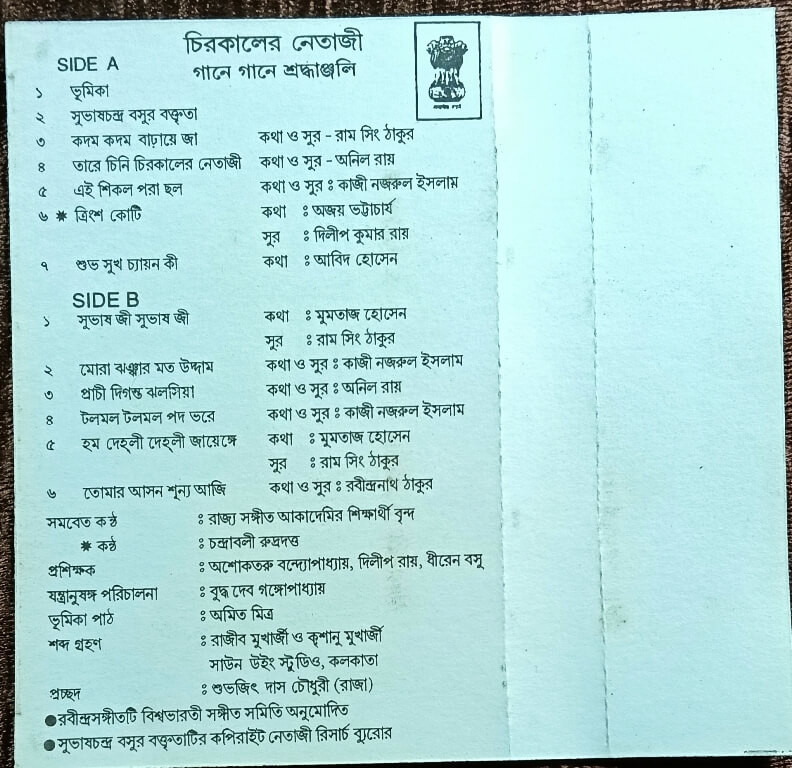 চিরকালের নেতাজী
SIDE A গানে গানে শ্রদ্ধাঞ্জলি
১ ভূমিকা
২ সুভাষচন্দ্র বসুর বক্তৃতা
৩ কদম কদম বাড়ায়ে জা কথা ও সুর - রাম সিং ঠাকুর
৪ তারে চিনি চিরকালের নেতাজী কথা ও সুর - অনিল রায়
৫ এই শিকল পরা ছল কথা ও সুর : কাজী নজরুল ইসলাম
৬ * ত্রিংশ কোটি কথা : অজয় ভট্টাচার্য
সুর : দিলীপ কুমার রায়
৭ শুভ সুখ চ্যায়ন কী কথা : আবিদ হোসেন
SIDE B
১ সুভাষ জী সুভাষ জী কথা : মুমতাজ হোসেন
সুর : রাম সিং ঠাকুর
২ মোরা ঝঞ্ঝার মত উদ্দাম কথা ও সুর : কাজী নজরুল ইসলাম
৩ প্রাচী দিগন্ত ঝলসিয়া কথা ও সুর : অনিল রায়
৪ টলমল টলমল পদ ভরে কথা ও সুর : কাজী নজরুল ইসলাম
৫ হম দেহলী দেহলী জায়েঙ্গে কথা : মুমতাজ হোসেন
সুর : রাম সিং ঠাকুর
৬ তোমার আসন শূন্য আজি কথা ও সুর : রবীন্দ্রনাথ ঠাকুর
সমবেত কন্ঠ : রাজ্য সঙ্গীত আকাদেমির শিক্ষার্থী বৃন্দ
* কন্ঠ : চন্দ্রাবলী রুদ্রদত্ত
প্রশিক্ষক : অশোকতরু বন্দ্যোপাধ্যায়, দিলীপ রায়, ধীরেন বসু
যন্ত্রানুষঙ্গ পরিচালনা : বুদ্ধ দেব গঙ্গোপাধ্যায়
ভূমিকা পাঠ : অমিত মিত্র
শব্দ গ্রহণ : রাজীব মুখার্জী ও কৃশানু মুখার্জী
সাউন্ড উইং স্টুডিও, কলকাতা
প্রচ্ছদ : শুভজিৎ দাস চৌধুরী (রাজা)
● রবীন্দ্রসঙ্গীতটি বিশ্বভারতী সঙ্গীত সমিতি অনুমোদিত
● সুভাষচন্দ্র বসুর বক্তৃতাটির কপিরাইট নেতাজী রিসার্চ ব্যুরোর